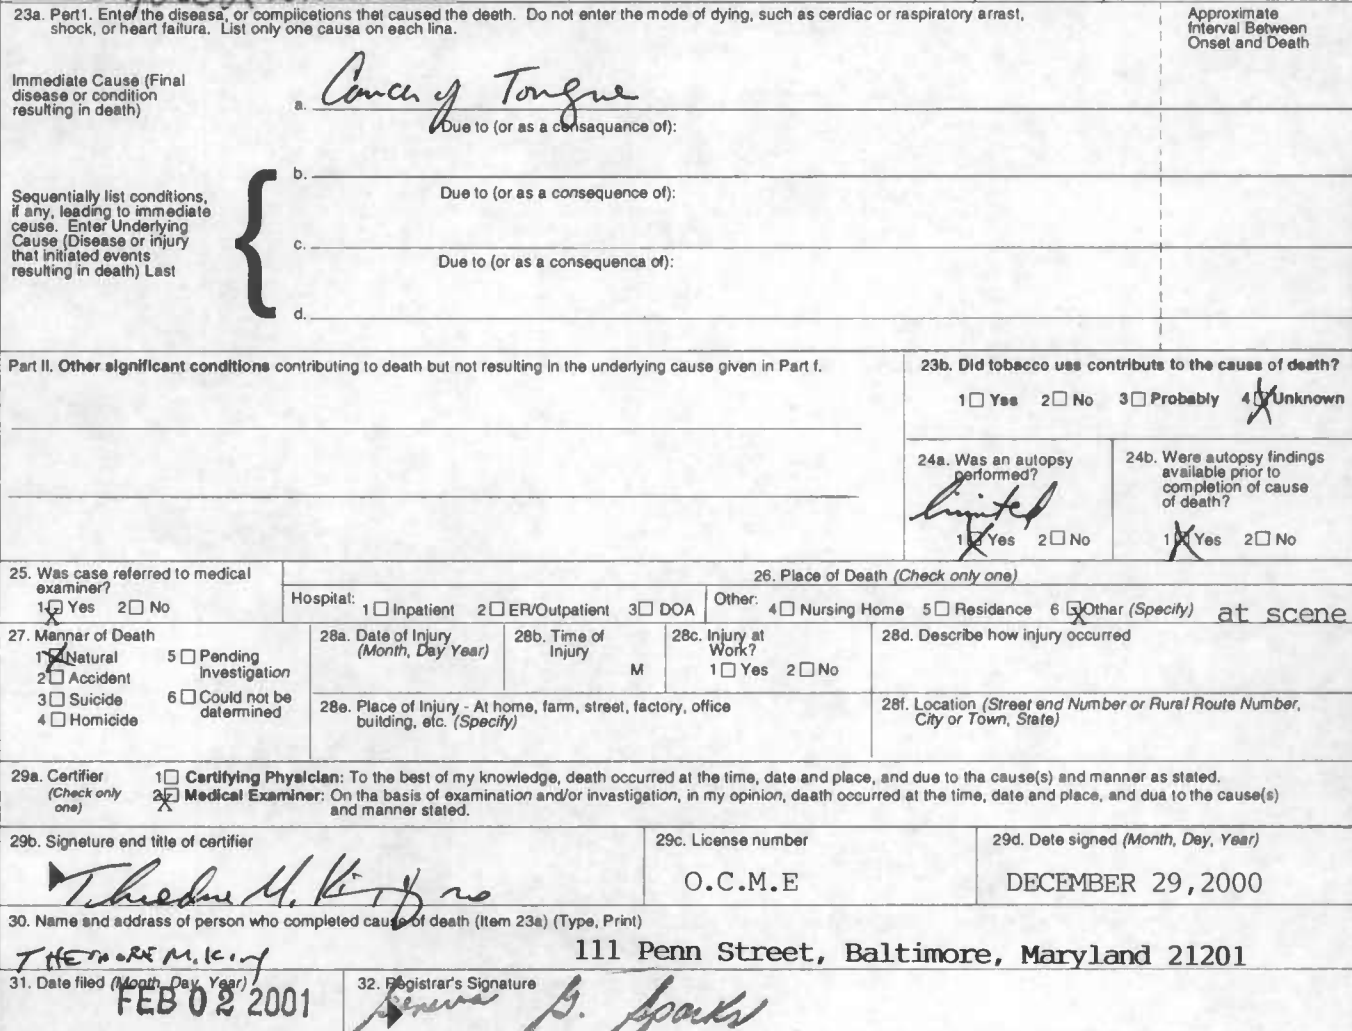 23a. Part1. Enter the disease, or complications that caused the death. Do not enter the mode of dying, such as cardiac or respiratory arrest, shock, or heart failure. List only one cause on each line.
Approximate Interval Between Onset and Death
Immediate Cause (Final disease or condition resulting in death)
a. Cancer of Tongue
Due to (or as a consequence of):
Sequentially list conditions, if any, leading to immediate cause. Enter Underlying Cause (Disease or injury that initiated events resulting in death) Last
b.
Due to (or as a consequence of):
c.
Due to (or as a consequence of):
d.
Part II. Other significant conditions contributing to death but not resulting in the underlying cause given in Part I.
23b. Did tobacco use contribute to the cause of death?
1 Yes 2 No 3 Probably 4 X Unknown
24a. Was an autopsy performed?
limited
1 X Yes 2 No
24b. Were autopsy findings available prior to completion of cause of death?
1 X Yes 2 No
25. Was case referred to medical examiner?
1 X Yes 2 No
26. Place of Death (Check only one)
Hospital: 1 Inpatient 2 ER/Outpatient 3 DOA Other: 4 Nursing Home 5 Residence 6 X Other (Specify) at scene
27. Manner of Death
1 X Natural 5 Pending Investigation
2 Accident
3 Suicide 6 Could not be determined
4 Homicide
28a. Date of Injury (Month, Day Year)
28b. Time of Injury M
28c. Injury at Work?
1 Yes 2 No
28d. Describe how injury occurred
28e. Place of Injury - At home, farm, street, factory, office building, etc. (Specify)
28f. Location (Street and Number or Rural Route Number, City or Town, State)
29a. Certifier (Check only one)
1 Certifying Physician: To the best of my knowledge, death occurred at the time, date and place, and due to the cause(s) and manner as stated.
2 X Medical Examiner: On the basis of examination and/or investigation, in my opinion, death occurred at the time, date and place, and due to the cause(s) and manner stated.
29b. Signature and title of certifier
Theodore M. King MD
29c. License number
O.C.M.E
29d. Date signed (Month, Day, Year)
DECEMBER 29,2000
30. Name and address of person who completed cause of death (Item 23a) (Type, Print)
THEODORE M. King 111 Penn Street, Baltimore, Maryland 21201
31. Date filed (Month, Day, Year)
FEB 02 2001
32. Registrar's Signature
Geneva G. Sparks